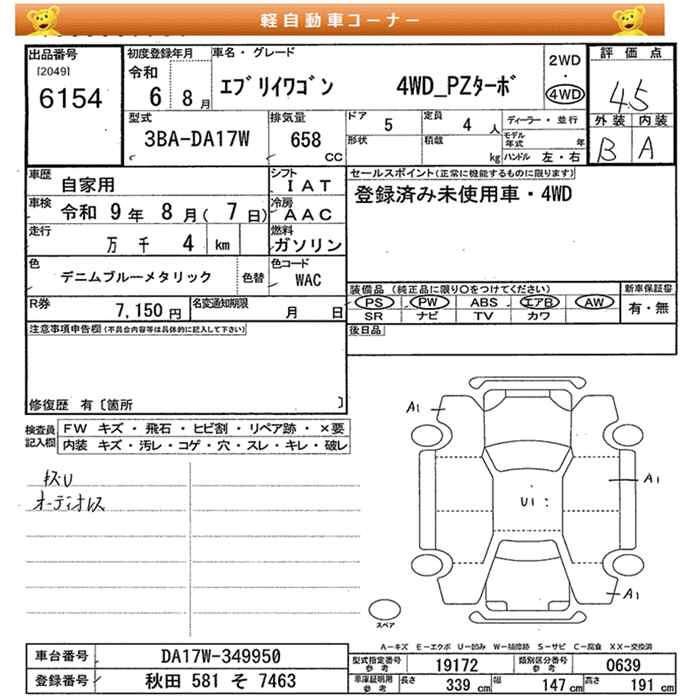 軽自動車コーナー
出品番号
[2049]
6154
初度登録年月
令和
6 8月
車名・グレード
エブリイワゴン 4WD_PZターボ
2WD
・
4WD
評価点
4.5
外装 内装
B A
型式
3BA-DA17W
排気量
658
CC
ドア
5
定員
4 人
形状
積載
kg
ディーラー・並行
モデル年式 年
ハンドル 左・右
車歴
自家用
シフト
IAT
車検
令和 9年 8月(7日)
冷房
AAC
走行
万 千 4 km
燃料
ガソリン
色
デニムブルーメタリック
色替
色コード
WAC
R券
7,150円
名変通知期限
月 日
セールスポイント(正常に機能するものに限ります)
登録済み未使用車・4WD
装備品 (純正品に限り○をつけてください)
PS PW ABS エアB AW
SR ナビ TV カワ
新車保証書
有・無
後日品
注意事項申告欄(不具合内容等は具体的に記入して下さい)
修復歴 有〔箇所 〕
検査員記入欄
FW キズ・飛石・ヒビ割・リペア跡・×要
内装 キズ・汚レ・コゲ・穴・スレ・キレ・破レ
キズU
オーディオレス
A1
A1
U1
A1
スペア
A-キズ E-エクボ U-凹み W-補修跡 S-サビ C-腐食 XX-交換済
車台番号
DA17W-349950
登録番号
秋田 581 そ 7463
型式指定番号
参考
19172
類別区分番号
参考
0639
車庫証明用
参考
長さ
339 cm
幅
147 cm
高さ
191 cm